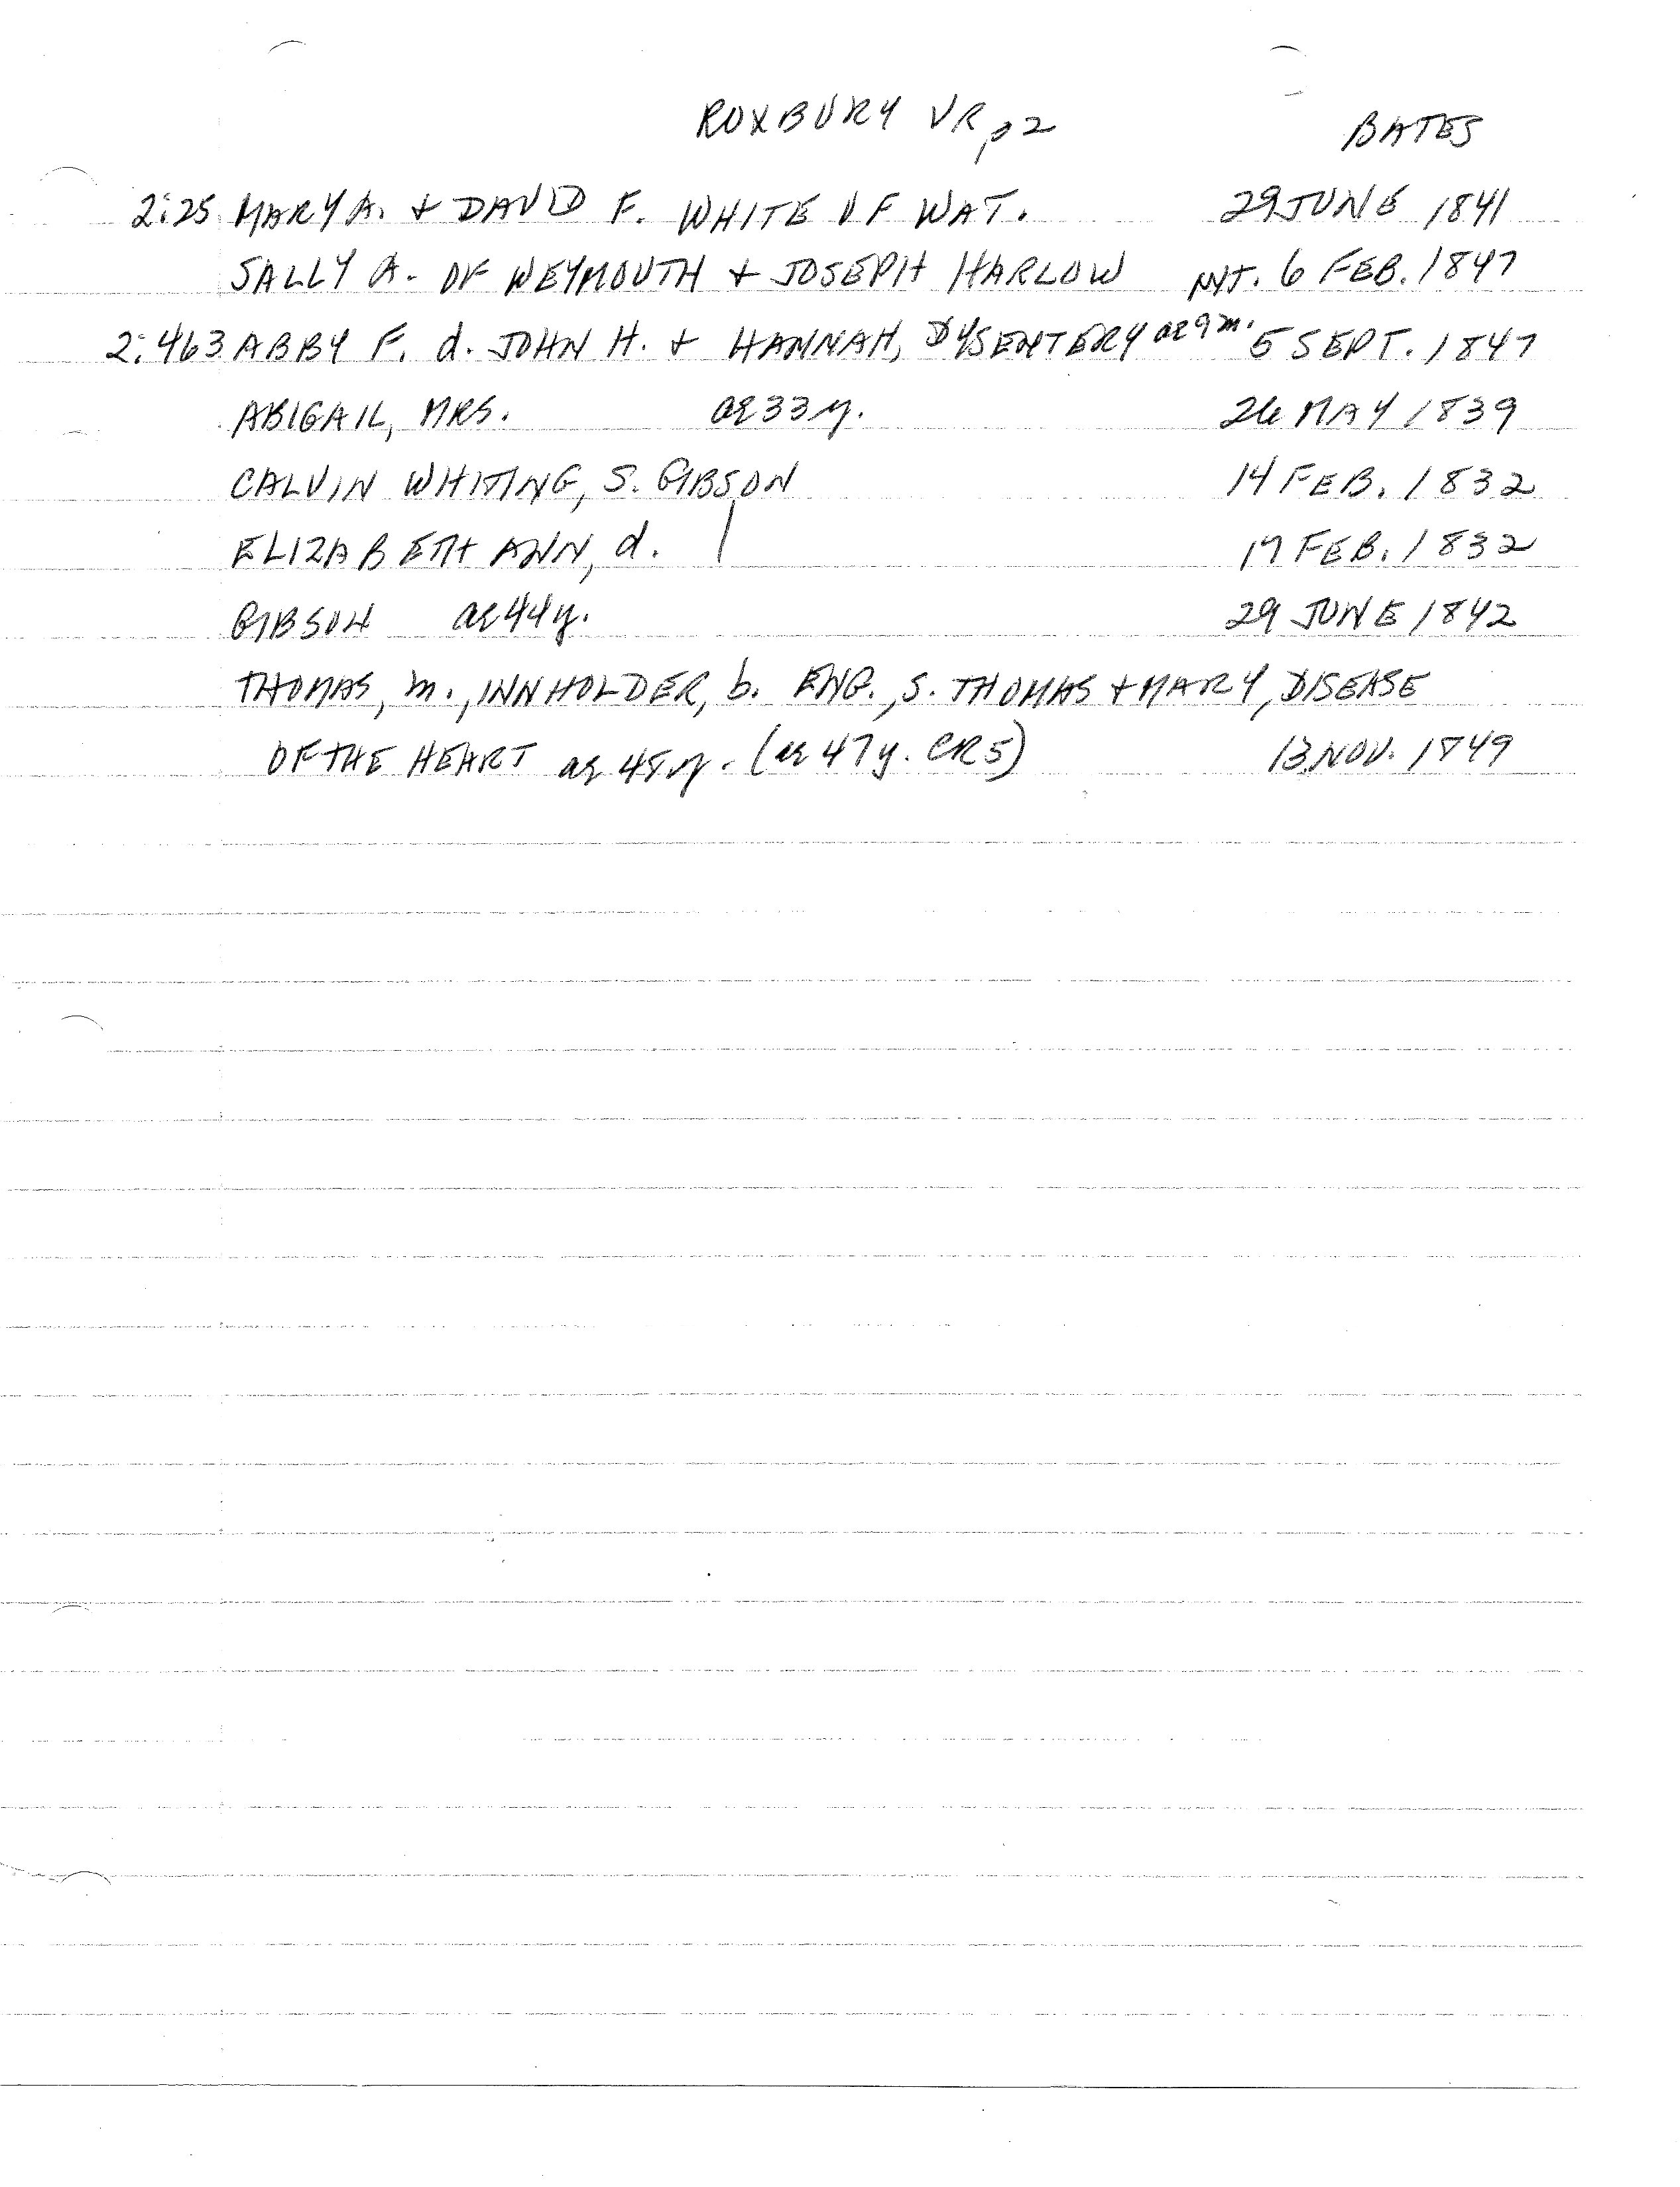 ROXBURY VR p2 BATES
2:25 MARY A. + DAVID F. WHITE OF WAT. 29 JUNE 1841
SALLY A. OF WEYMOUTH + JOSEPH HARLOW INT. 6 FEB. 1847
2:463 ABBY F. d. JOHN H. + HANNAH, DYSENTERY ae 9 m. 5 SEPT. 1847
ABIGAIL, MRS. ae 33 y. MAY 1839
CALVIN WHITING, S. GIBSON 14 FEB. 1832
ELIZABETH ANN, d. | 17 FEB. 1832
GIBSON ae 44 y. 29 JUNE 1842
THOMAS, m., INNHOLDER, b. ENG., S. THOMAS + MARY, DISEASE
OF THE HEART ae 48 y. (ae 47 y. CR5) 13 NOV. 1849